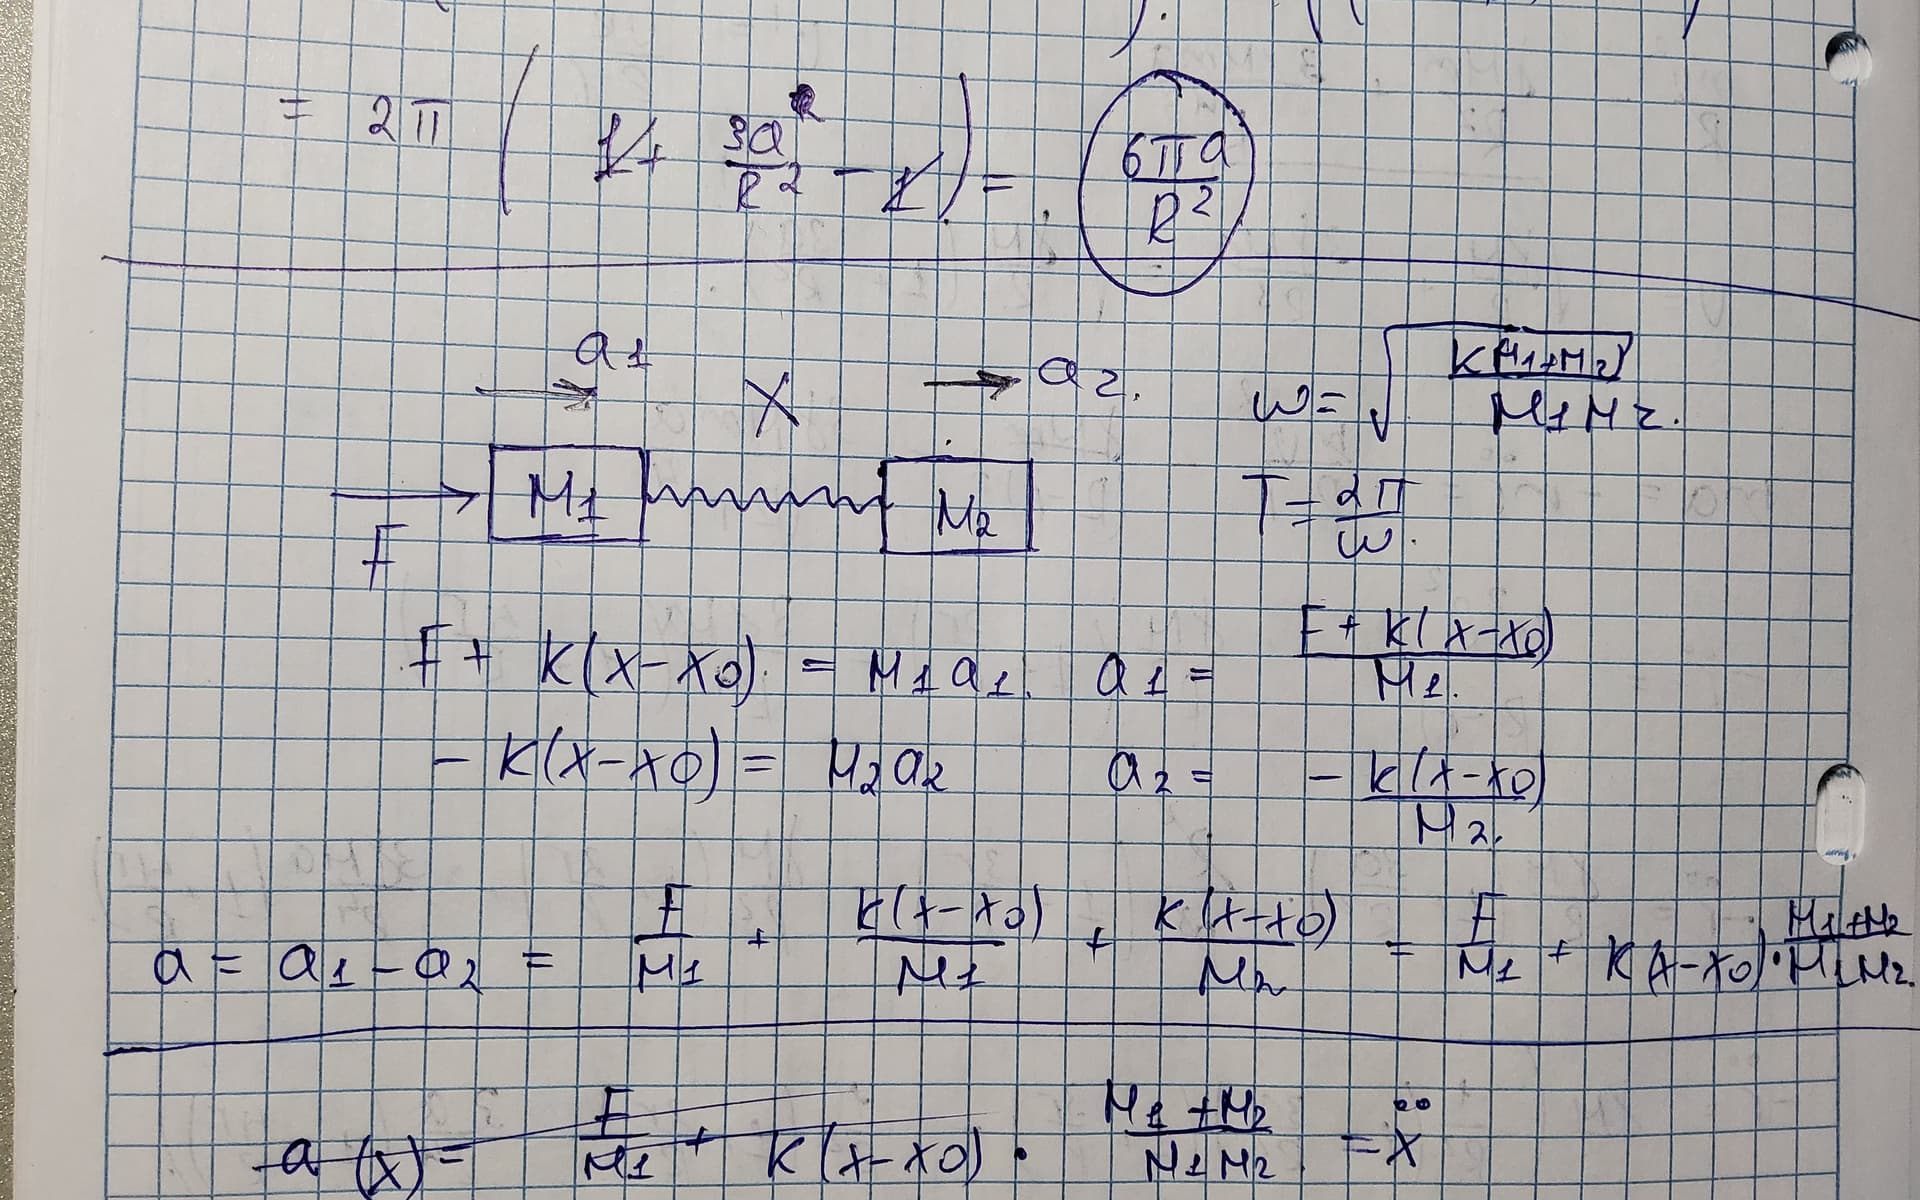 = 2π ( 1 + 3a/R² − 1 ) = 6πa/R²
a1 X a2.
ω = √(K(M1+M2)/M1M2.)
F M1 M2
T = 2π/ω.
F + K(x−x0) = M1a1. a1 = F + K(x−x0)/M1.
− K(x−x0) = M2a2 a2 = − K(x−x0)/M2.
a = a1 − a2 = F/M1 + K(x−x0)/M1 + K(x−x0)/M2 = F/M1 + K(x−x0)·M1+M2/M1M2.
a(x) = F/M1 + K(x−x0) · M1+M2/M1M2 = ẍ